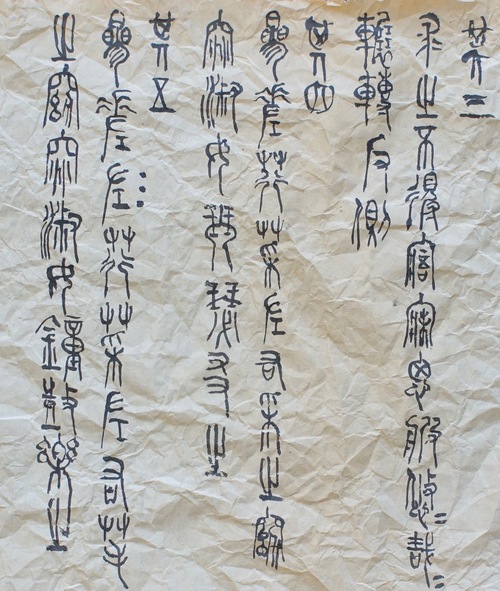 其三
求之不得寤寐思服悠=哉=
輾轉反側
其四
參差荇菜左右采之窈
窕淑女琴瑟友之
其五
參差左荇菜左右芼
之窈窕淑女鐘鼓樂之